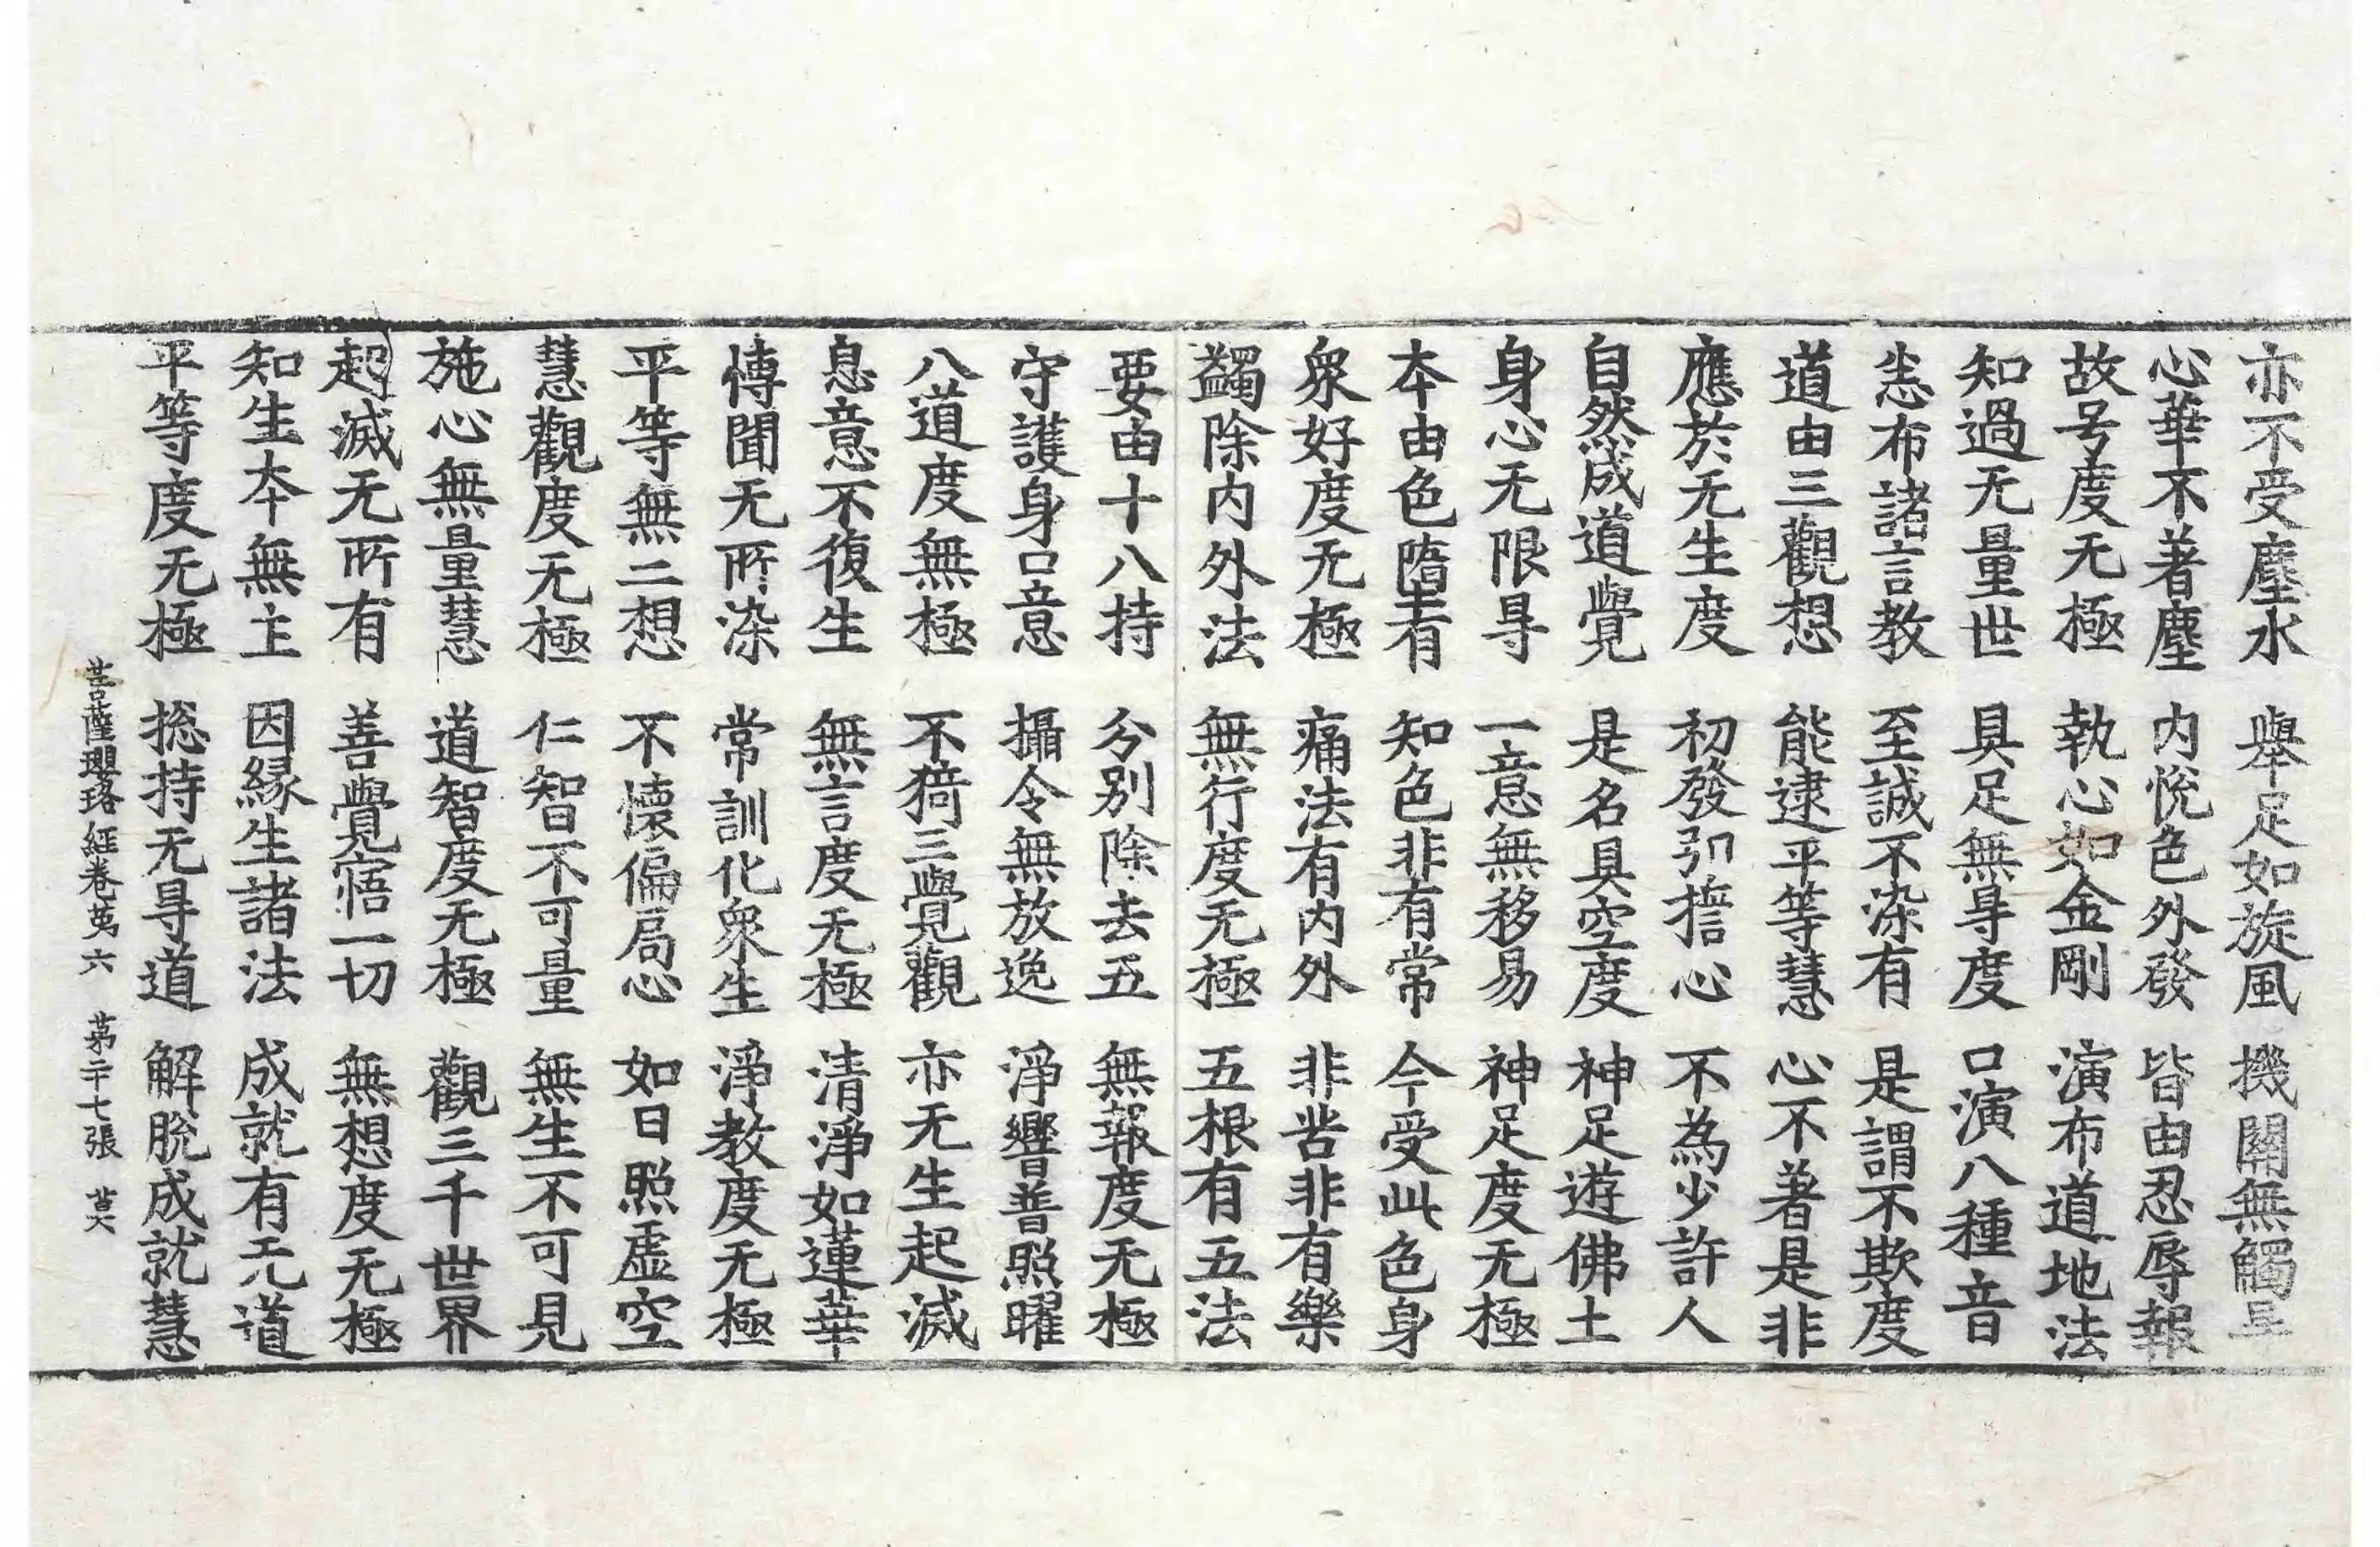 亦不受塵水 擧足如旋風 機關無觸
心華不著塵 内恱色外發 皆由忍辱報
故号度无極 執心如金剛 演布道地法
知過无量世 具足無㝵度 口演八種音
恙布諸言教 至誠不染有 是謂不欺度
道由三觀想 能逮平等慧 心不著是非
應於无生度 初發弘擔心 不為少許人
自然成道覺 是名具空度 神足遊佛土
身心无限㝵 一意無移易 神足度无極
本由色墮有 知色非有常 今受此色身
衆好度无極 痛法有内外 非苦非有樂
蠲除内外法 無行度无極 五根有五法
要由十八持 分別除去五 無報度无極
守護身口意 攝令無放逸 淨響普照曜
八道度無極 不猗三覺觀 亦无生起滅
息意不復生 無言度无極 清淨如蓮華
博聞无所染 常訓化衆生 淨教度无極
平等無二想 不懷偏局心 如日照虚空
慧觀度无極 仁智不可量 無生不可見
施心無量慧 道智度无極 觀三千世界
起滅无所有 善覺寤一切 無想度无極
知生本無主 因緣生諸法 成就有无道
平等度无極 捴持无㝵道 解脫成就慧
菩薩瓔珞經卷苐六 苐二十七張 莫